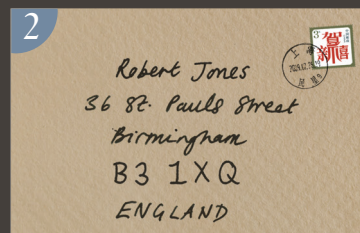 2
Robert Jones
36 St. Pauls Street
Birmingham
B3 1XQ
ENGLAND
3
贺新禧
上海